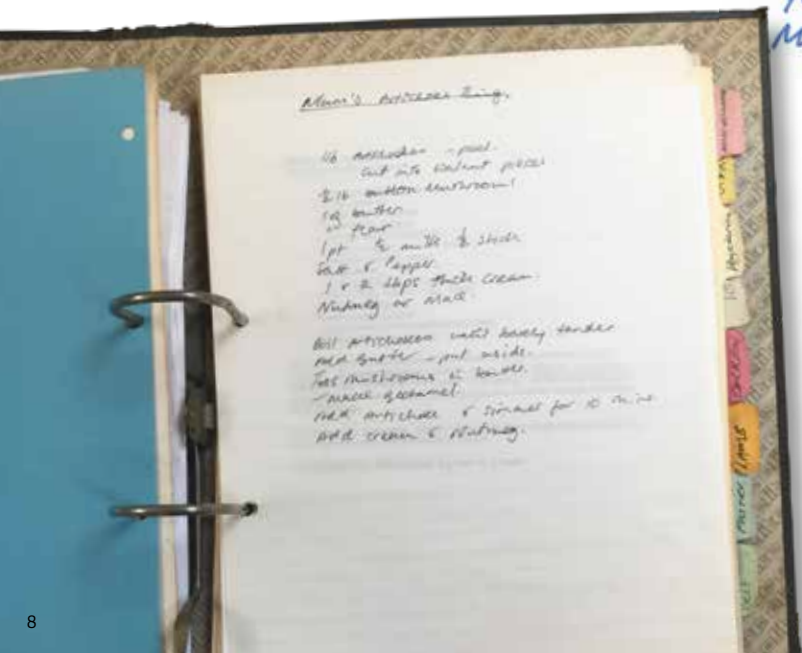 Mum's Artichoke
1lb Artichokes - peel.
cut into walnut pieces
½ lb button mushrooms
1 oz butter
" flour
1pt ½ milk ½ stock
Salt & Pepper.
1 or 2 tbps thick cream.
Nutmeg or mace.
Boil artichokes until barely tender
Add - put aside.
Toss mushrooms in butter.
- make
Add artichoke & simmer for 10 mins
Add cream & Nutmeg.
CHICKEN
LAMB
8